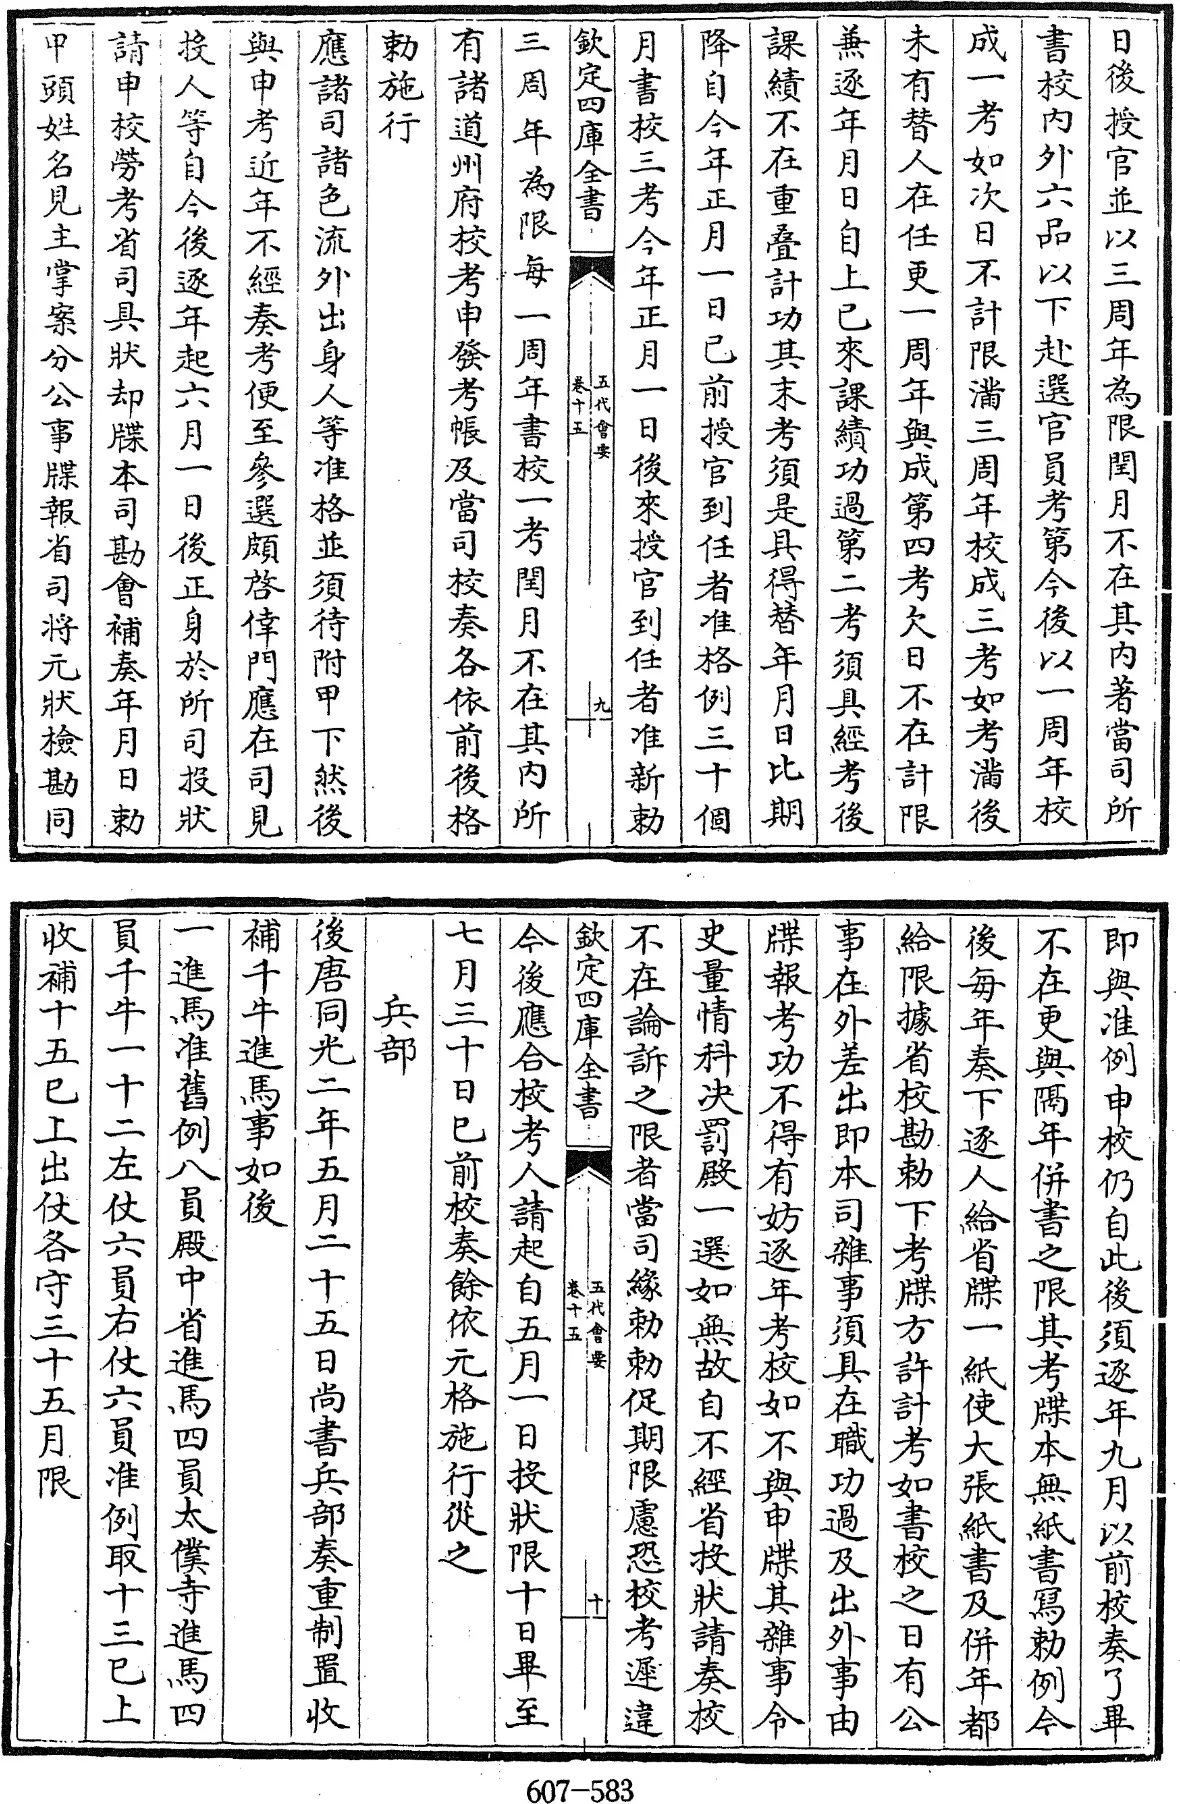 日後授官並以三周年為限閏月不在其內著當司所
書校內外六品以下赴選官員考第今後以一周年校
成一考如次日不計限滿三周年校成三考如考滿後
未有替人在任更一周年與成第四考欠日不在計限
兼逐年月日自上已來課績功過第二考須具經考後
課績不在重疊計功其末考須是具得替年月日比期
降自今年正月一日已前授官到任者准格例三十個
月書校三考今年正月一日後來授官到任者准新勅
欽定四庫全書
五代會要
卷十五
九
三周年為限每一周年書校一考閏月不在其內所
有諸道州府校考申發考帳及當司校奏各依前後格
勅施行
應諸司諸色流外出身人等准格並須待附甲下然後
與申考近年不經奏考便至參選頗啓倖門應在司見
投人等自今後逐年起六月一日後正身於所司投狀
請申校勞考省司具狀却牒本司勘會補奏年月日勅
甲頭姓名見主掌案分公事牒報省司將元狀檢勘同
即與准例申校仍自此後須逐年九月以前校奏了畢
不在更與隔年併書之限其考牒本無紙書寫勅例今
後每年奏下逐人給省牒一紙使大張紙書及併年都
給限據省校勘勅下考牒方許計考如書校之日有公
事在外差出即本司雜事須具在職功過及出外事由
牒報考功不得有妨逐年考校如不與申牒其雜事令
史量情科決罰殿一選如無故自不經省投狀請奏校
不在論訴之限者當司緣勅勅促期限慮恐校考遲違
欽定四庫全書
五代會要
卷十五
十
今後應合校考人請起自五月一日投狀限十日畢至
七月三十日已前校奏餘依元格施行從之
兵部
後唐同光二年五月二十五日尚書兵部奏重制置收
補千牛進馬事如後
一進馬准舊例八員殿中省進馬四員太僕寺進馬四
員千牛一十二左仗六員右仗六員准例取十三已上
收補十五已上出仗各守三十五月限
607-583